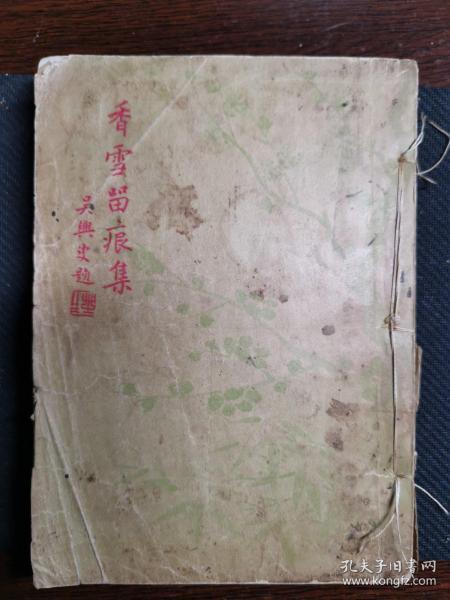 香雪留痕集
吴興史題
孔夫子旧書网
www.kongfz.com